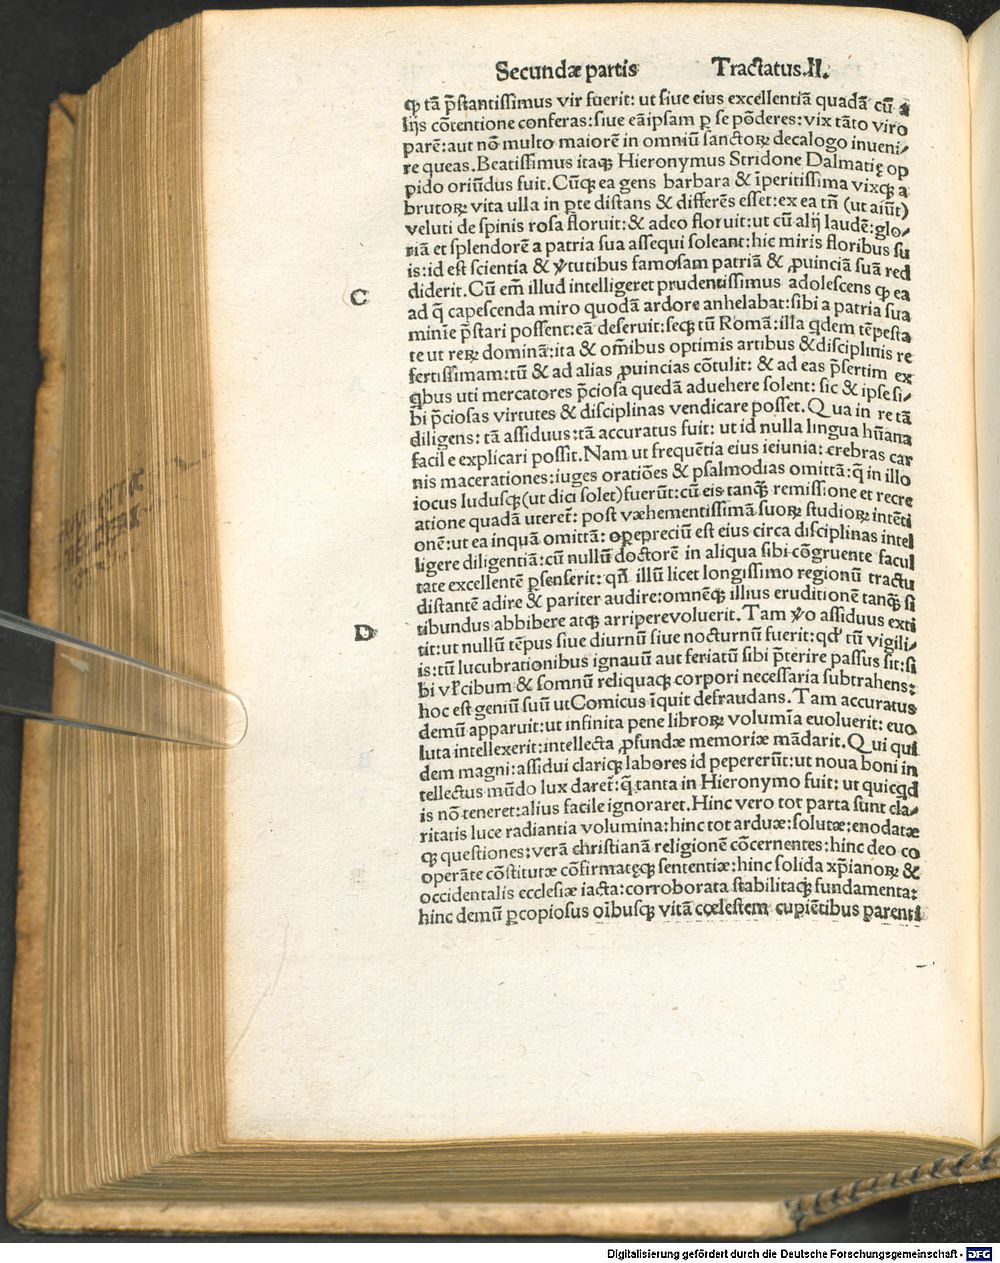 Secundæ partis Tractatus.II.
ꝙ tã p̃stantissimus vir fuerit: ut siue eius excellentiã quadã cũ a
lijs cõtentione conferas: siue eãipsam ꝑ se põderes: vix tãto viro
parẽ: aut nõ multo maiorẽ in omniũ sanctoꝝ decalogo inueni⸗
re queas. Beatissimus itaqꝫ Hieronymus Stridone Dalmatię op
pido oriũdus fuit. Cũqꝫ ea gens barbara & ĩperitissima vixqꝫ a
brutoꝝ vita ulla in ꝑte distans & differẽs esset: ex ea tñ (ut aiũt)
veluti de spinis rosa floruit: & adeo floruit: ut cũ alij laudẽ: glo⸗
riã et splendorẽ a patria sua assequi soleant: hic miris floribus su
is: id est scientia & v̓tutibus famosam patriã & ꝓuinciã suã red
diderit. Cũ em̃ illud intelligeret prudentissimus adolescens ꝙ ea
C
ad q̃ capescenda miro quodã ardore anhelabat: sibi a patria sua
minie p̃stari possent: eã deseruit: seqꝫ tũ Romã: illa qdem tẽpesta
te ut reꝝ dominã: ita & om̃ibus optimis artibus & disciplinis re
fertissimam: tũ & ad alias ꝓuincias cõtulit: & ad eas p̃sertim ex
qbus uti mercatores p̃ciosa quedã aduehere solent: sic & ipse si⸗
bi p̃ciosas virtutes & disciplinas vendicare posset. Qua in re tã
diligens: tã assiduus: tã accuratus fuit: ut id nulla lingua hũana
facile explicari possit. Nam ut frequẽtia eius ieiunia: crebras car
nis macerationes: iuges oratiões & psalmodias omittã: q̃ in illo
iocus ludusqꝫ (ut dici solet) fuerũt: cũ eis tanqꝫ̃ remissione et recre
atione quadã uteret̃: post væhementissimã suoꝝ studioꝝ intẽti
onẽ: ut ea inquã omittã: opepreciũ est eius circa disciplinas intel
ligere diligentiã: cũ nullũ doctorẽ in aliqua sibi cõgruente facul
tate excellentẽ ꝑsenserit: qñ illũ licet longissimo regionũ tractu
distantẽ adire & pariter audire: omnẽqꝫ illius eruditionẽ tanqꝫ̃ si
tibundus abbibere atqꝫ arriperevoluerit. Tam v̓o assiduus exti
D
tit: ut nullũ tẽpus siue diurnũ siue nocturnũ fuerit: qd̓ tũ vigili⸗
is: tũ lucubrationibus ignauũ aut feriatũ sibi p̃terire passus sit: si
bi vꝉ cibum & somnũ reliquaqꝫ corpori necessaria subtrahens:
hoc est geniũ suũ utComicus ĩquit defraudans. Tam accuratus
demũ apparuit: ut infinita pene libroꝝ volumĩa euoluerit: euo
luta intellexerit: intellecta ꝓfundæ memoriæ mãdarit. Qui qui
dem magni: assidui clariqꝫ labores id pepererũt: ut noua boni in
tellectus mũdo lux daret̃: q̃ tanta in Hieronymo fuit: ut quicqd
is nõ teneret: alius facile ignoraret. Hinc vero tot parta sunt cla⸗
ritatis luce radiantia volumina: hinc tot arduæ: solutæ: enodatæ
qꝫ questiones: verã christianã religionẽ cõcernentes: hinc deo co
operãte cõstitutæ cõfirmatęqꝫ sententiæ: hinc solida xp̃ianoꝝ &
occidentalis ecclesiæ iacta: corroborata stabilitaqꝫ fundamenta:
hinc demũ ꝑcopiosus oĩbusqꝫ vitã cœlestem cupiẽtibus parenti
Digitalisierung gefördert durch die Deutsche Forschungsgemeinschaft - DFG